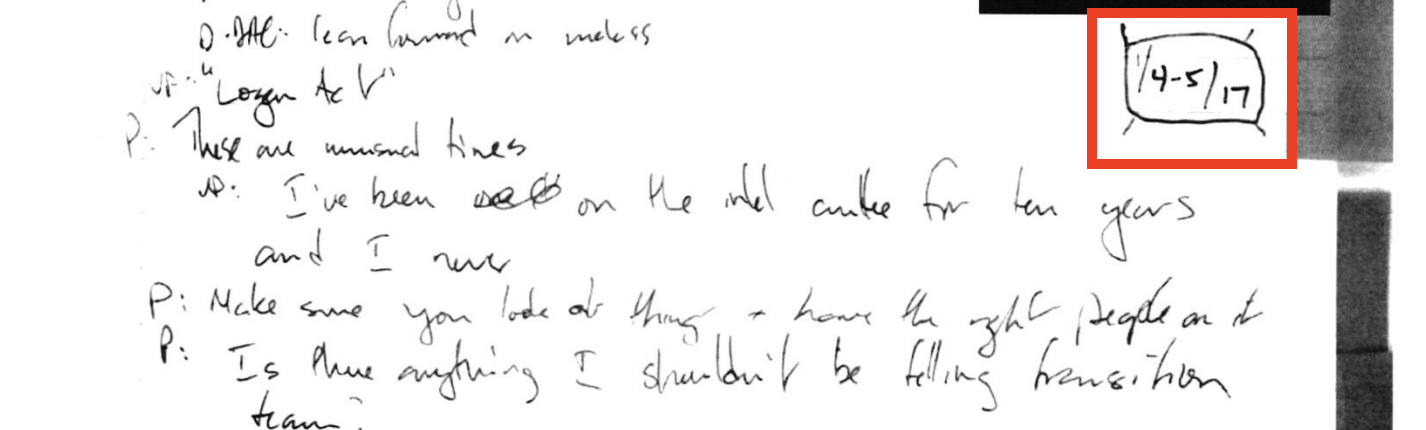 D-DAG: lean forward on unclass
VP: "Logan Act"
P: These are unusual times
VP: I've been on the intel cmtee for ten years
and I never
P: Make sure you look at things + have the right people on it
P: Is there anything I shouldn't be telling transition
team?
1/4-5/17